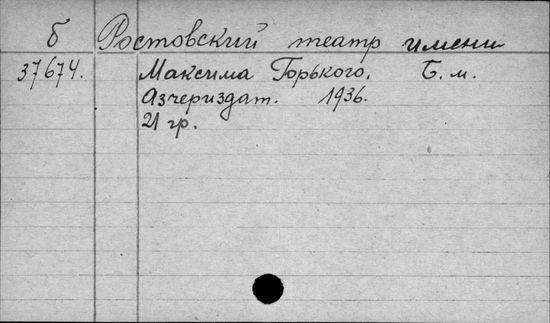 б Ростовский театр имени
37674. Максима Горького. Б.м.
Азчериздат. 1936.
21 гр.